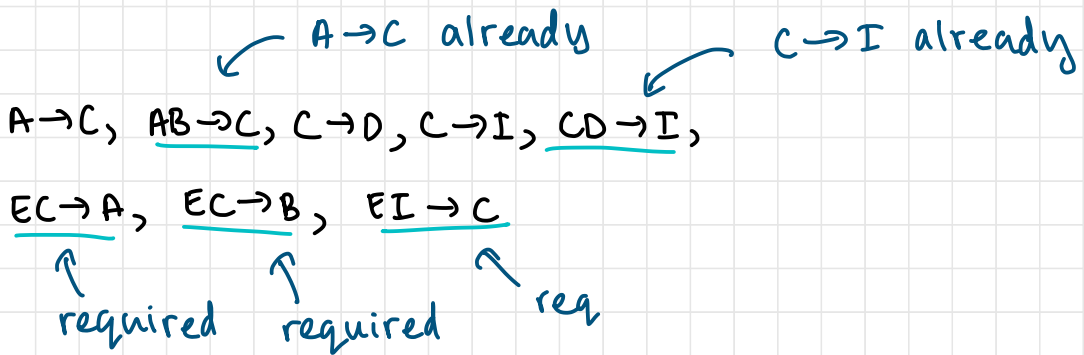 A→C already
C→I already
A→C, AB→C, C→D, C→I, CD→I,
EC→A, EC→B, EI→C
required
required
req